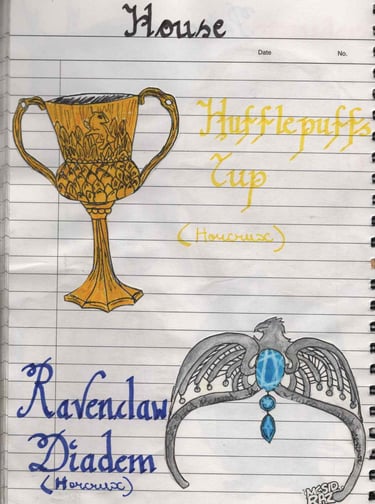 House
Date No.
Hufflepuffs
Cup
(Horcrux)
Ravenclaw
Diadem
(Horcrux)